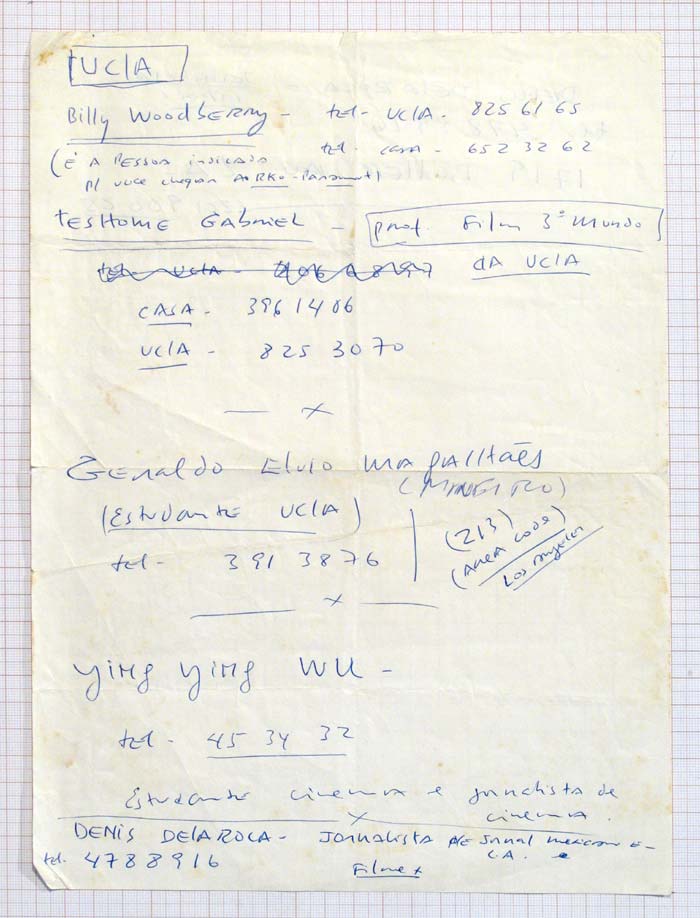 UCLA
Billy Woodberry - tel - UCLA - 825 61 65
tel - casa - 652 32 62
(É A PESSOA indicada
p/ você chegar Ao RKO - Paramount)
tesHome GABRIEL - prof. Film 3º Mundo
tel - UCLA -
dA UCLA
CASA - 396 14 06
UCLA - 825 30 70
— x
Geraldo Elvio MAgalhães
(MINEIRO)
(Estudante UCLA)
tel - 391 38 76
(213)
(AReA code)
Los Angeles
— x —
Ying Ying WU -
tel - 45 34 32
Estudante cinema e jornalista de
cinema.
x
DENIS DELAROCA - Jornalista
tel. 4788916
L.A. e
Filmex